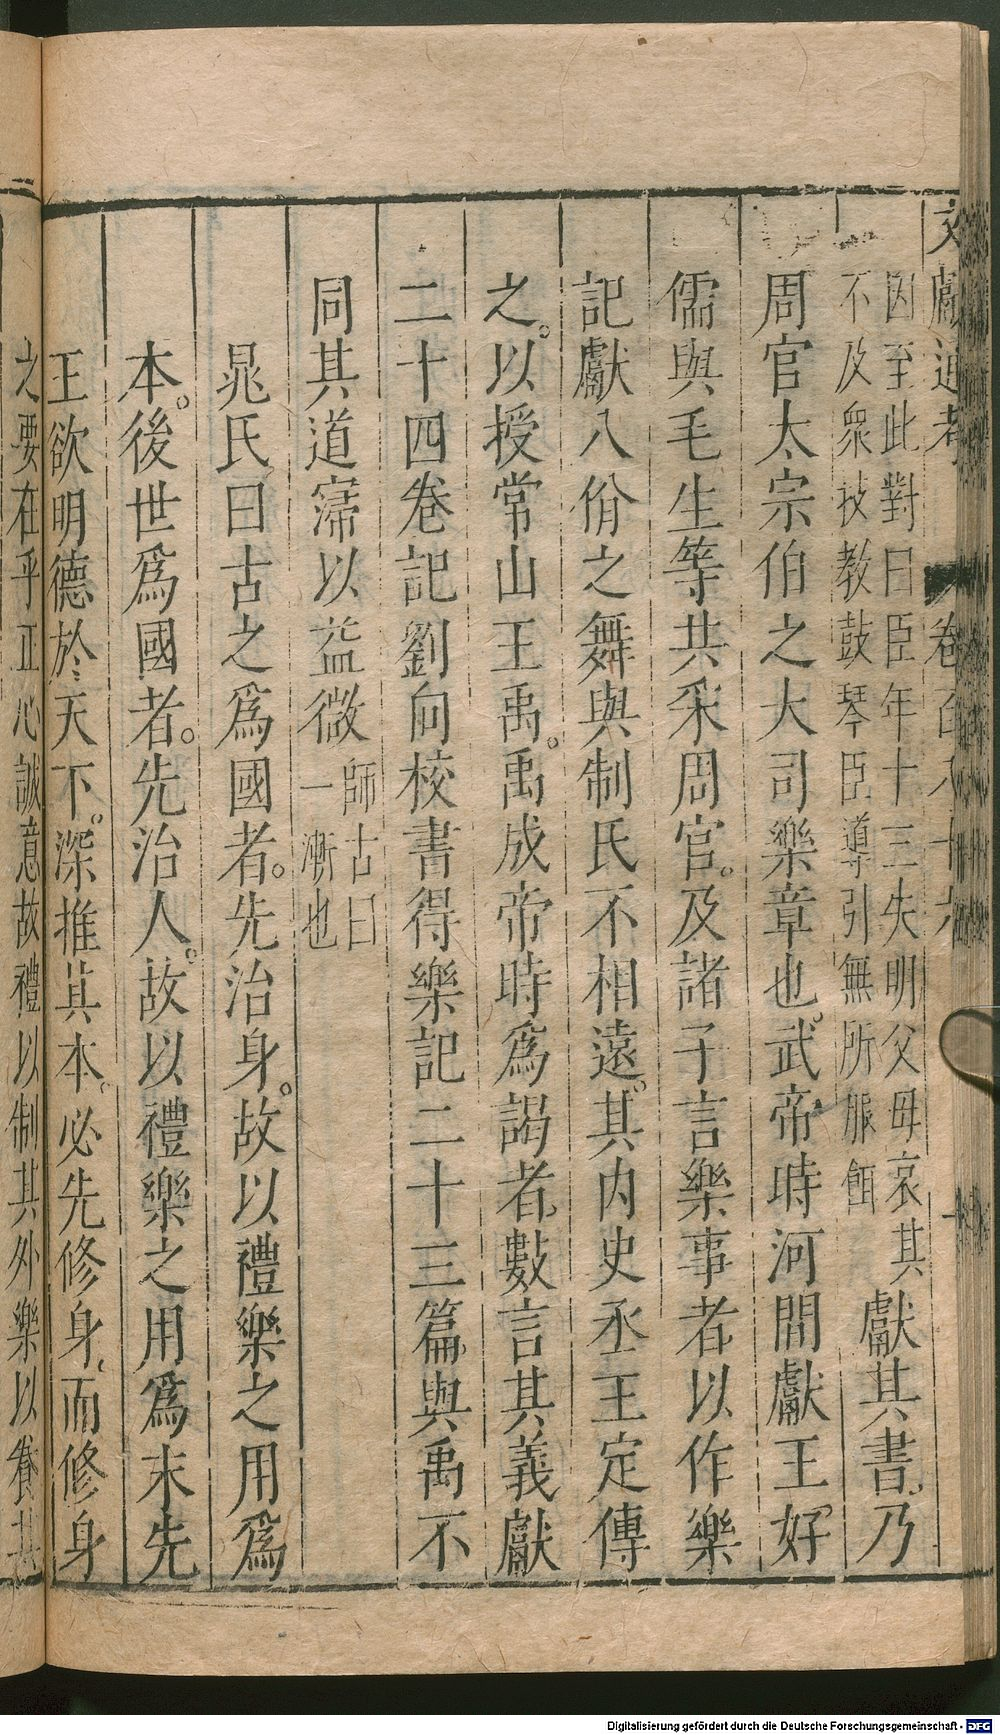 文獻通考 卷百八十六
因至此對曰臣年十三失明父母哀其
不及衆技教鼓琴臣導引無所服餌
獻其書乃
周官太宗伯之大司樂章也武帝時河間獻王好
儒與毛生等共采周官。及諸子言樂事者以作樂
記獻八佾之舞與制氏不相遠。其内史丞王定傳
之。以授常山王禹。禹成帝時爲謁者數言其義獻
二十四卷記劉向校書得樂記二十三篇與禹不
同其道寖以益微
師古曰
漸也
晁氏曰古之爲國者。先治身。故以禮樂之用爲
本。後世爲國者。先治人。故以禮樂之用爲末先
王欲明德於天下。深推其本。必先修身。而修身
之要在乎正心誠意故禮以制其外樂以養其
Digitalisierung gefördert durch die Deutsche Forschungsgemeinschaft - DFG